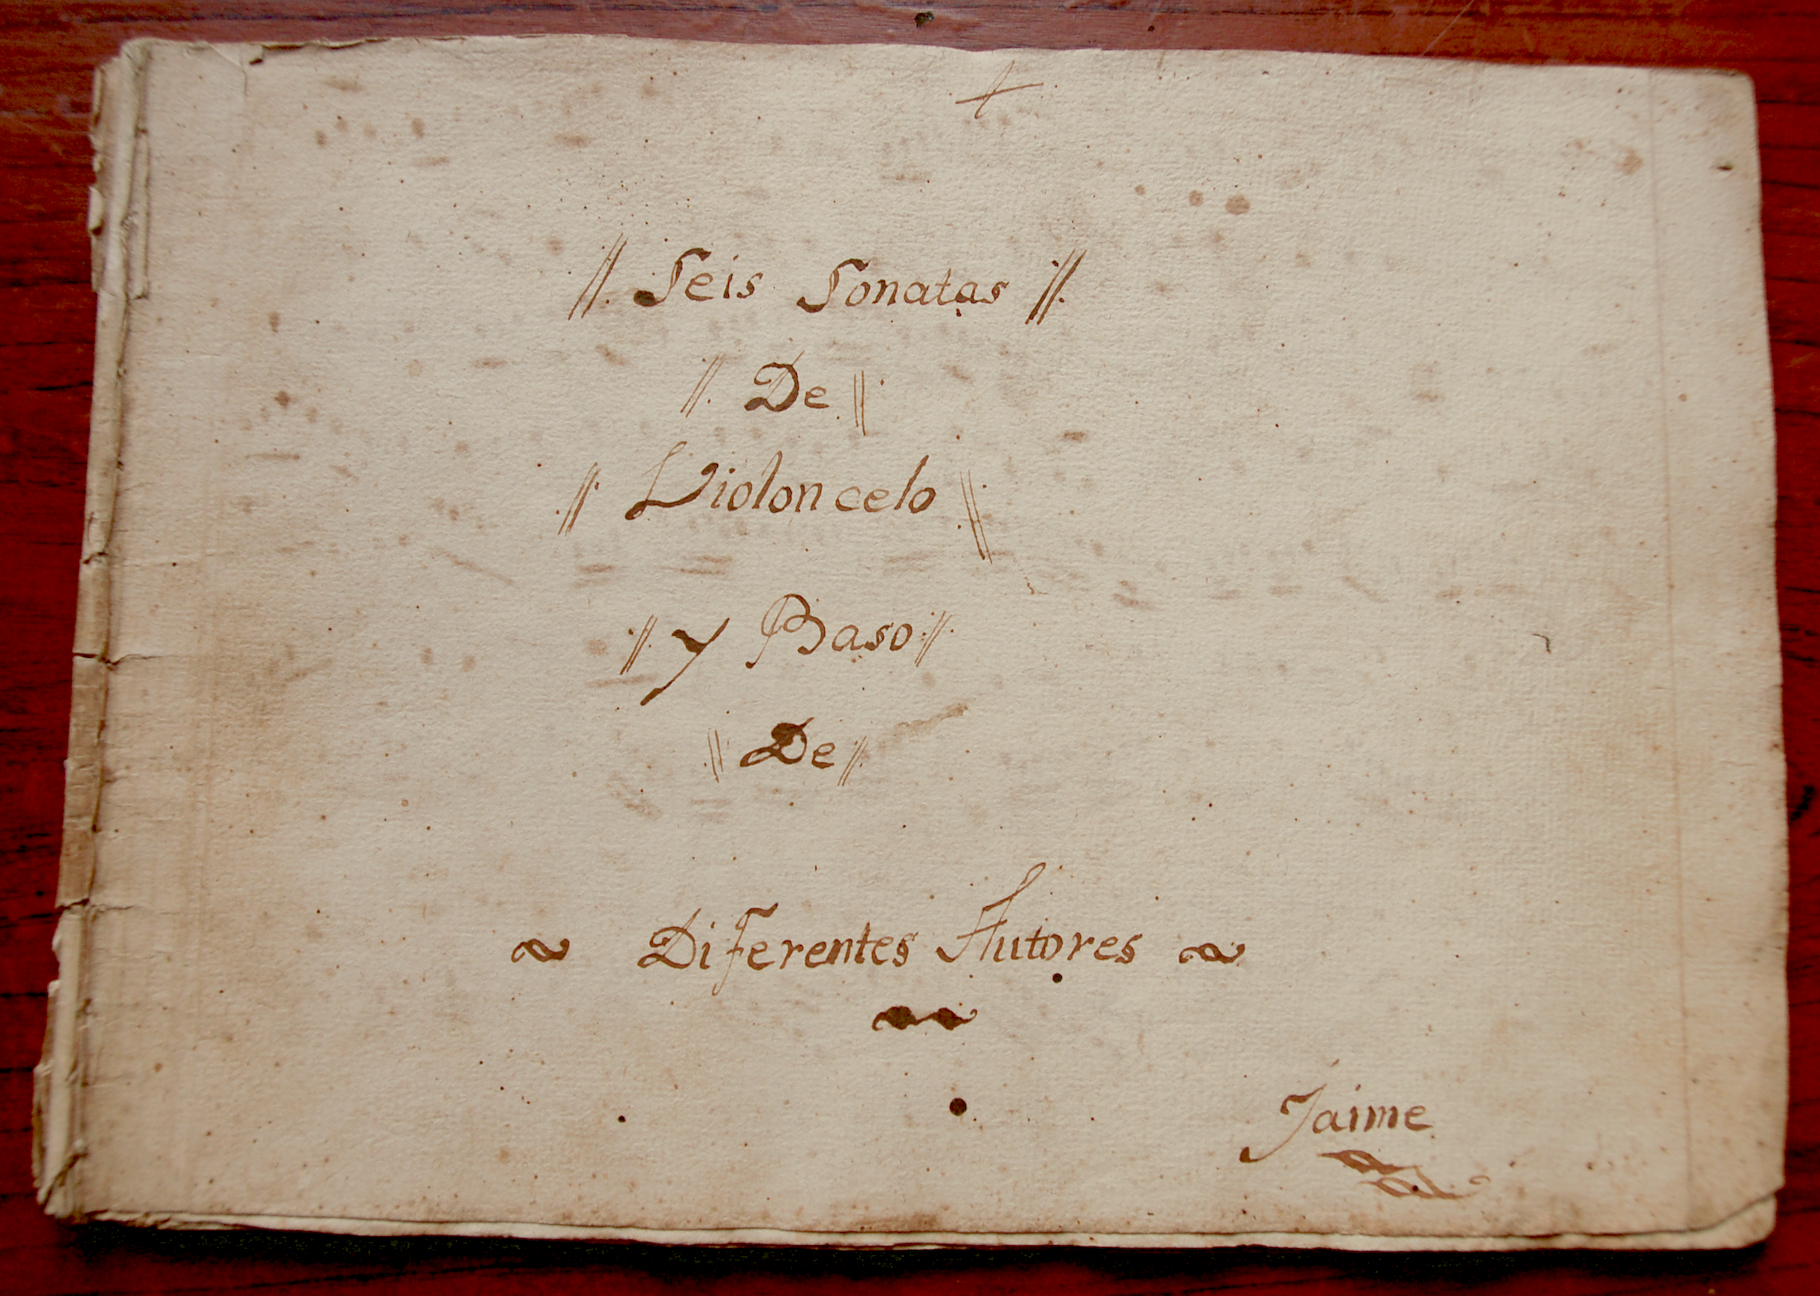 +
//. Seis Sonatas //.
//. De //.
.//. Violoncelo //.
.//. y Baso .//.
// De //
~ Diferentes Autores ~
Jaime